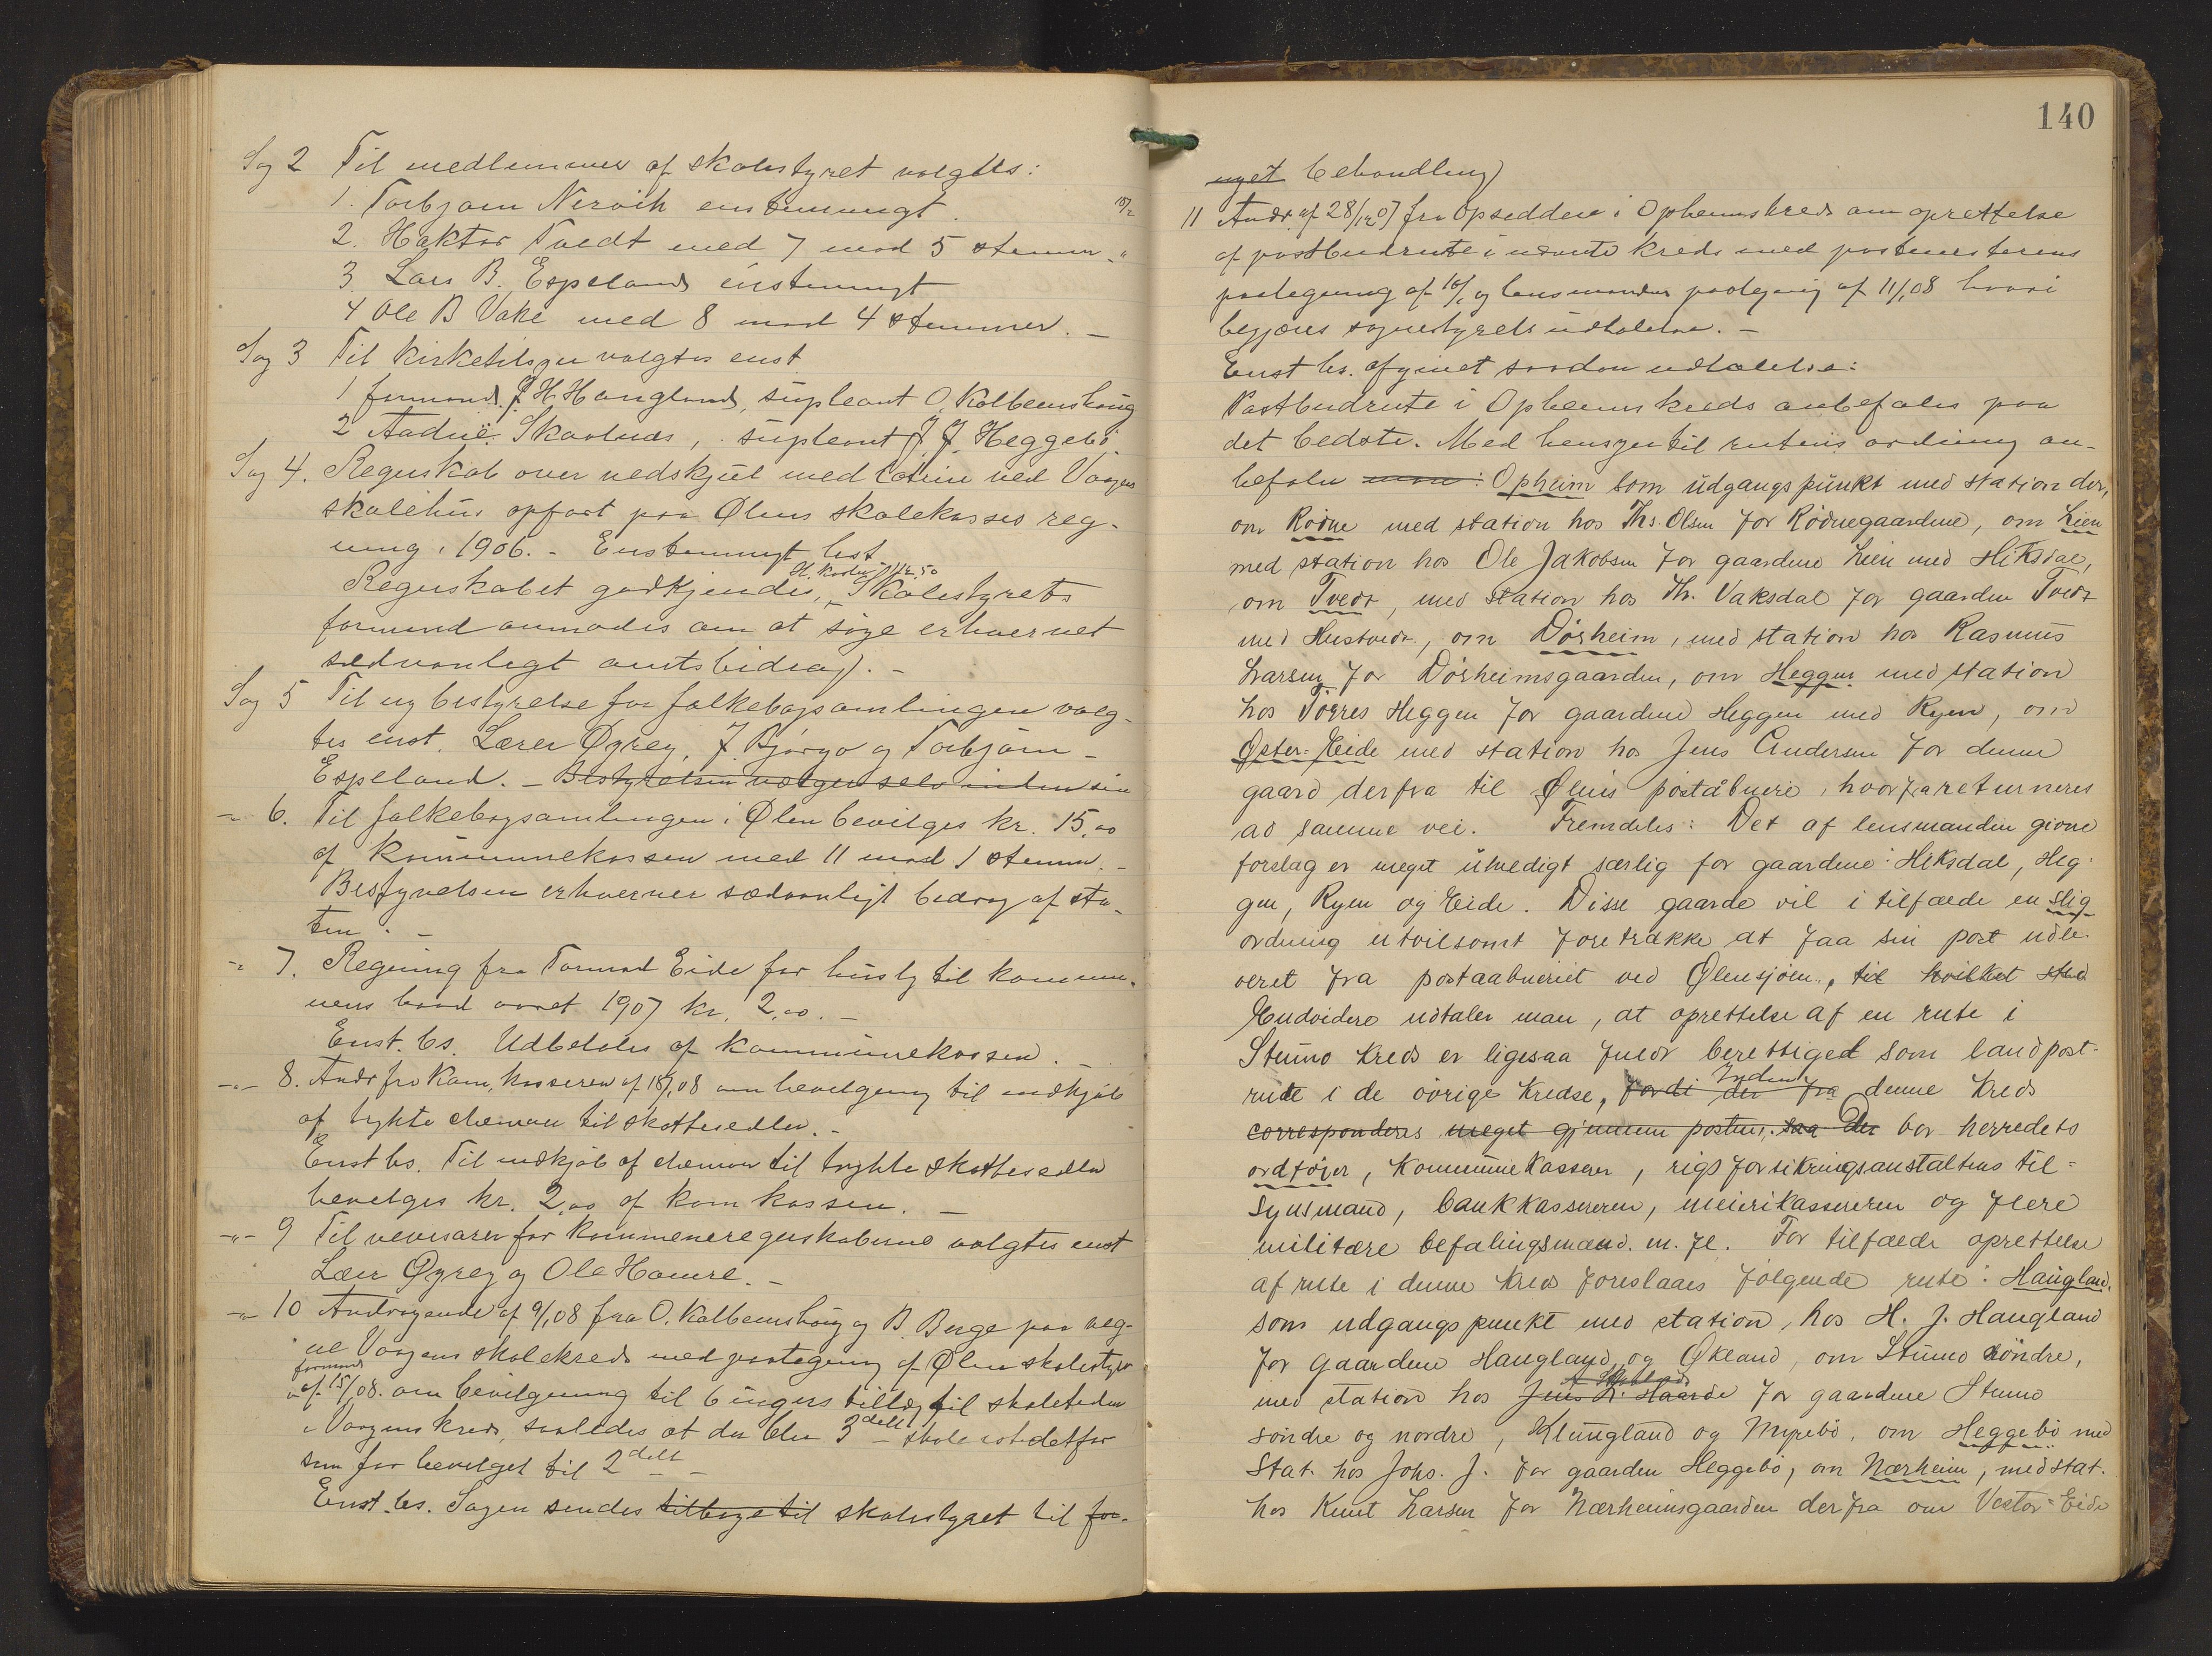 Sag 2 Til medlemmer af skolestyret valgtes:
1. Torbjørn Nervik enstemmigt.
2. Haktor Tvedt med 7 mod 5 stemmer. "
3. Lars B. Espeland enstemmigt
4 Ole B Vake med 8 mod 4 stemmer. –
Sag 3 Til kirketilsyn valgtes enst
1 formand. J. H. Haugland, supleant O. Kalbeinshaug
2 Aadne Skaalnes, supleant J. J. Heggebø.
Sag 4. Regnskab over vedskjul med latrine ved Vaagens
skolehus opført paa Ølens skolekasses reg-
ning i 1906. - Enstemmigt best
Regnskabet godkjendes, Skolestyrets
formand anmodes om at søge erhvervet
sædvanligt amtsbidrag. –
Sag 5 Til ny bestyrelse for folkebogsamlingen valg-
tes enst. Lærer Øyrey, J. Bjørgo og Torbjørn
Espeland. – Bestyrelsen vælger selv inden sin
-"- 6. Til folkebogsamlingen i Ølen bevilges kr. 15,00
af kommunekassen med 11 mod 1 stemme. –
Bestyrelsen erhverver sædvanligt bidrag af sta-
ten. –
-"- 7. Regning fra Tormod Eide for husly til kommu-
nens baad aaret 1907 kr. 2,00. –
Enst. bs. Udbetales af kommunekassen. –
-"- 8. Andr fra Kom. kasseren af 18/1 08 om bevilgning til indkjøb
af trykte skemaer til skattesedler. –
Enst bs. Til indkjøb af skemaer til trykte skattesedler
bevilges kr. 2,00 af kom kassen. –
-"- 9 Til revisorer for kommuneregnskaberne valgtes enst
Lærer Øyrey og Ole Hamre. –
-"- 10 Andragende af 9/1 08 fra O. Kalbeinshaug og B. Berge paa veg-
ne Vaagens skolekreds med paategning af Ølen skolestyre
formand
af 15/1 08. om bevilgning til 6 ugers tillæg til skoletiden
i Vaagens kreds, saaledes at der blev 3 delt skole istedetfor
som før bevilget til 2 delt –
Enst. bs. Sagen sendes tilbage til skolestyret til for-
140
nyet behandling)
11 Andr. af 28/12 07 fra opsiddere i Opheimskreds om oprettelse
af postbudrute i nævnte kreds med postmesterens
paategning af 16/1 og lensmandens paategning af 11/1 08 hvori
begjæres sognestyrets udtalelse. –
Enst bs. afgivet saadan udtalelse:
Postbudrute i Opheimskreds anbefales paa
det bedste. Med hensyn til rutens ordning an-
befaler man: Opheim som udgangspunkt med station der,
om Rødne med station hos Ths. Olsen for Rødnegaardene, om Lien
med station hos Ole Jakobsen for gaardene Lien med Hiksdal,
om Tvedt, med station hos Th. Vaksdal for gaarden Tvedt
med Hustvedt, om Dørheim, med station hos Rasmus
Larsen for Dørheimsgaarden, om Heggen med station
hos Torres Heggen for gaardene Heggen med Ryen, om
Øster-Eide med station hos Jens Andersen for denne
gaard derfra til Ølens poståbneri, hvorfra returneres
ad samme vei. Fremdeles: Det af lensmanden givne
forslag er meget uheldigt særlig for gaardene: Hiksdal, Heg-
gen, Ryen og Eide. Disse gaarde vil i tilfælde en slig
ordning utvilsomt foretrække at faa sin post udle-
veret fra postaabneriet ved Ølensjøen, til hvilket sted
Endvidere udtaler man, at oprettelse af en rute i
Stumo kreds er ligesaa fuldt berettiged som landpost-
rute i de øvrige kredse, fordi der fra denne kreds
Inden
corresponderes meget gjennem posten, saa Der bor herredets
ordfører, kommunekasserer, rigsforsikringsanstaltens til-
synsmand, bankkassereren, meierikassereren og flere
militære befalingsmænd. m. fl. For tilfælde oprettelse
af rute i denne kreds foreslaaes følgende rute: Haugland
som udgangspunkt med station, hos H. J. Haugland
for gaardene Haugland og Økland, om Stumo søndre,
med station hos Jens L. Haarde for gaardene Stumo
søndre og nordre, Klungland og Myrebø, om Heggebø med
Stat. hos Johs. J. for gaarden Heggebø, om Nærheim, med stat.
hos Knut Larsen for Nærheimsgaarden derfra om Vestor-Eide